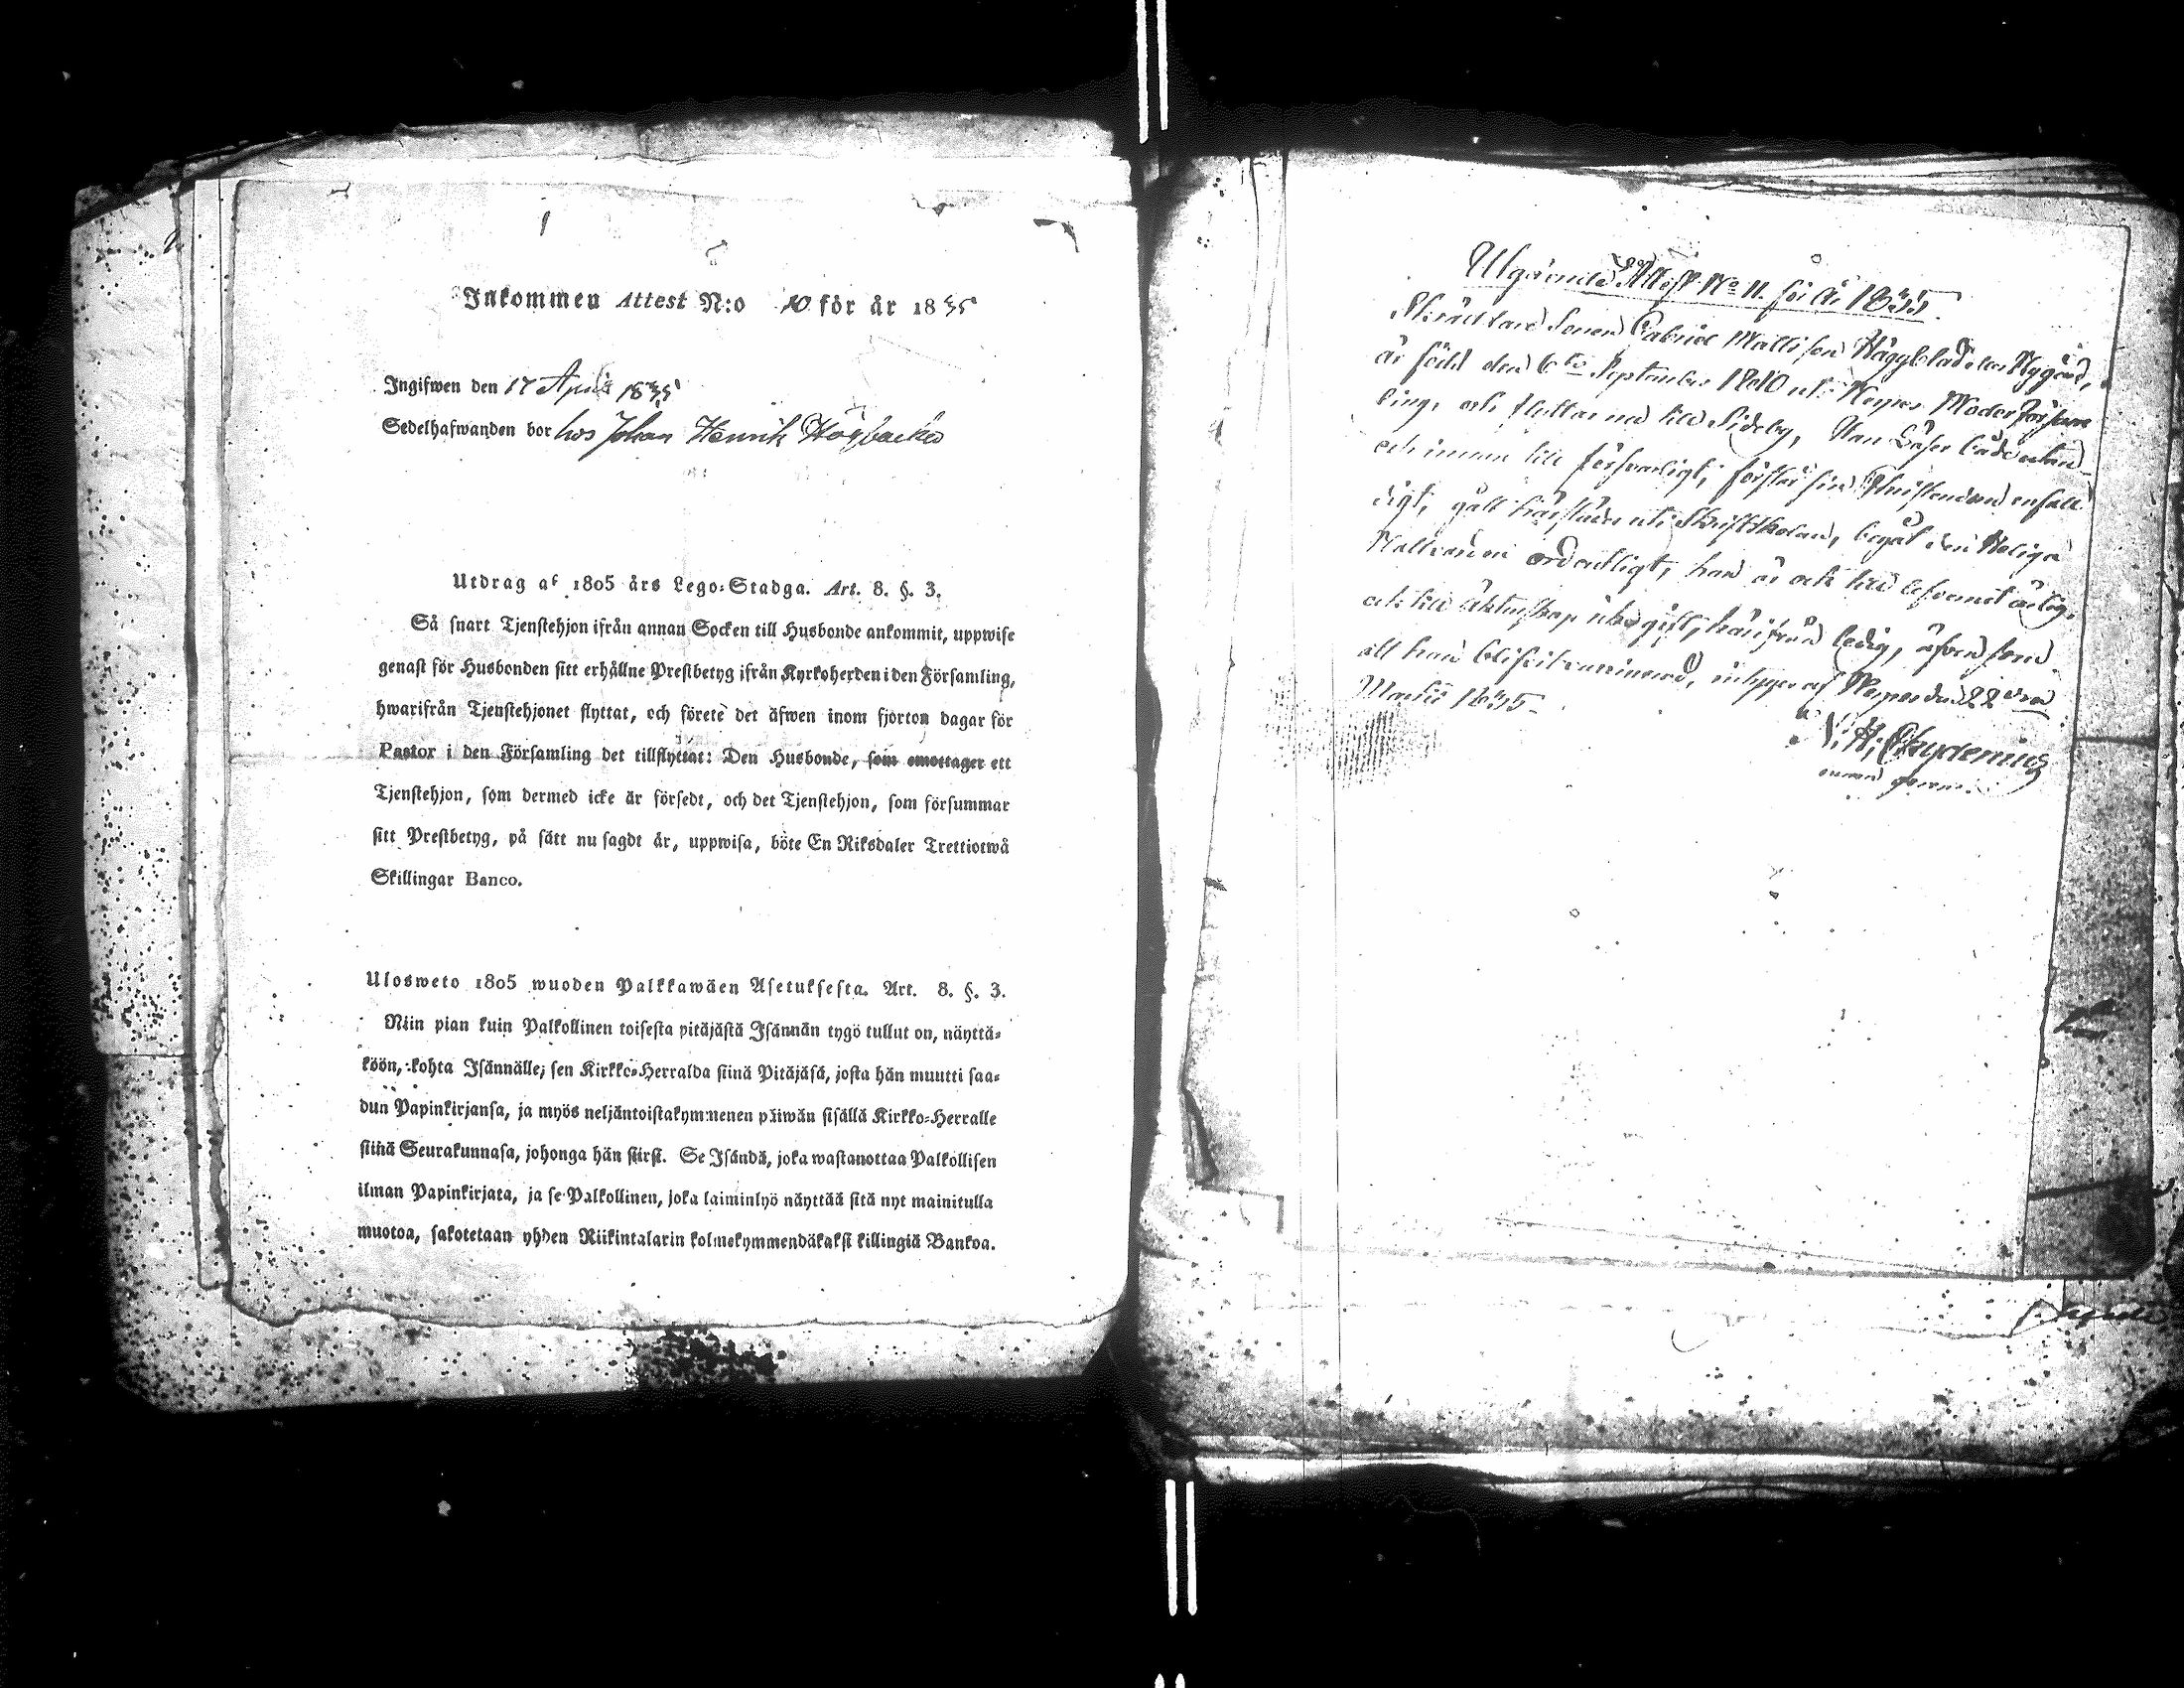 Inkommen Attest N:o 10 för år 1835
Ingifwen den 17 April 1835
Sedelhafwanden bor hos Johan Henrik Högbacka
Utdrag af 1805 års Lego-Stadga. Art. 8. §. 3.
Så snart Tjenstehjon ifrån annan Socken till Husbonde ankommit, uppwise
genast för Husbonden sitt erhållne Prestbetyg ifrån Kyrkoherden i den Församling,
hwarifrån Tjenstehjonet flyttat, och förete det äfwen inom fjorton dagar för
Pastor i den Församling det tillflyttat: Den Husbonde, som emottager ett
Tjenstehjon, som dermed icke är försedt, och det Tjenstehjon, som försummar
sitt Prestbetyg, på sätt nu sagdt är, uppwisa, böte En Riksdaler Trettiotwå
Skillingar Banco.
Ulosweto 1805 wuoden Palkkawäen Asetuksesta. Art. 8. §. 3.
Niin pian kuin Palkollinen toisesta pitäjästä Isännän tygö tullut on, näyttä-
köön, kohta Isännälle; sen Kirkko-Herralda siinä Pitäjäsä, josta hän muutti saa-
dun Papinkirjansa, ja myös neljäntoistakymmenen päiwän sisällä Kirkko-Herralle
siinä Seurakunnasa, johonga hän siirsi. Se Isändä, joka wastanottaa Palkollisen
ilman Papinkirjata, ja se Palkollinen, joka laiminlyö näyttää sitä nyt mainitulla
muotoa, sakotetaan yhden Riikintalarin kolmekymmendäkaksi killingiä Bankoa.
Utgående Attest No 11. för År 1835.
Skräddare Sonen Gabriel Mattsson Häggblad eller Nygård,
är född den 6te September 1810 uti Nerpes Moderförsam
ling, och flyttar nu till Sideby, Han Läser både utan
och innan till försvarligt, förstår sin Christendom enfall
digt, gått härstädes uti Skriftskolan, begåt den Heliga
Nattvarden ordentligt, han är ock till lefvernet ärlig,
och till äktenskap icke gift, härifrån ledig, äfven som
att han blifvit vaccinerad, intygar af Nerpes den 22dra
Martii 1835.
N. H. Chydenius